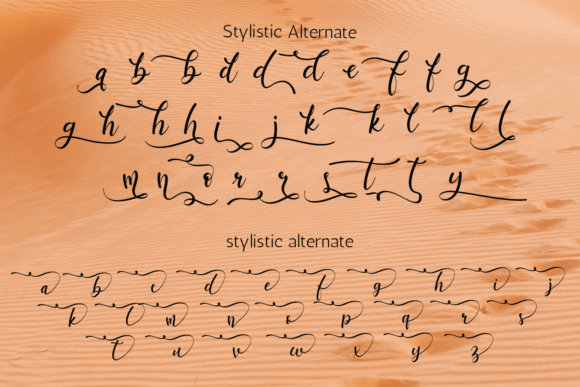 Stylistic Alternate
q b b d d d e f f g
g h h h i j k k l l l
m n o r r s t t y
stylistic alternate
a b c d e f g h i j
k l m n o p q r s
t u v w x y z